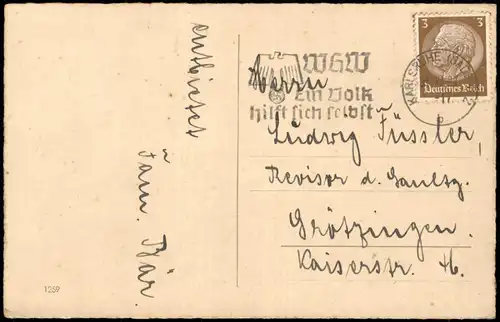 entbietet
Fam. Bär
1259
WHW
Ein Volk
hilft sich selbst
3 3
Deutsches Reich
KARLSRUHE
Herrn
Ludwig Füssler,
Revisor d.
Grötzingen.
Kaiserstr.